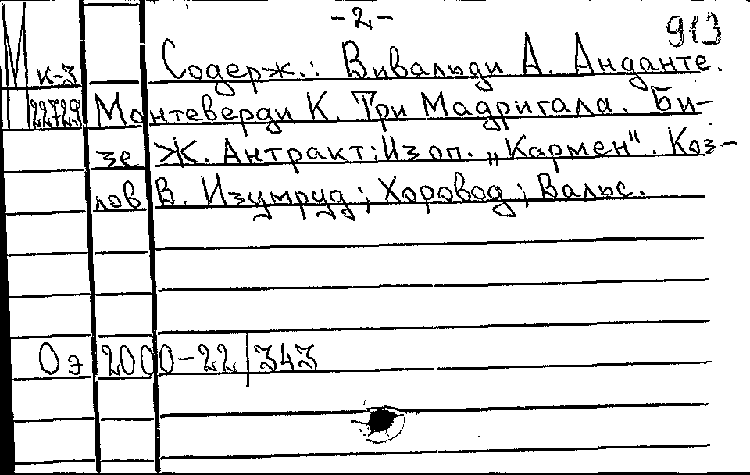 -2-
913
М к-3
22729
Содерж.: Вивальди А. Анданте.
Монтеверди К. Три Мадригала. Би-
зе Ж. Антракт: Из оп. „Кармен". Коз-
лов В. Изумруд; Хоровод; Вальс.
Оэ 2000-22 343